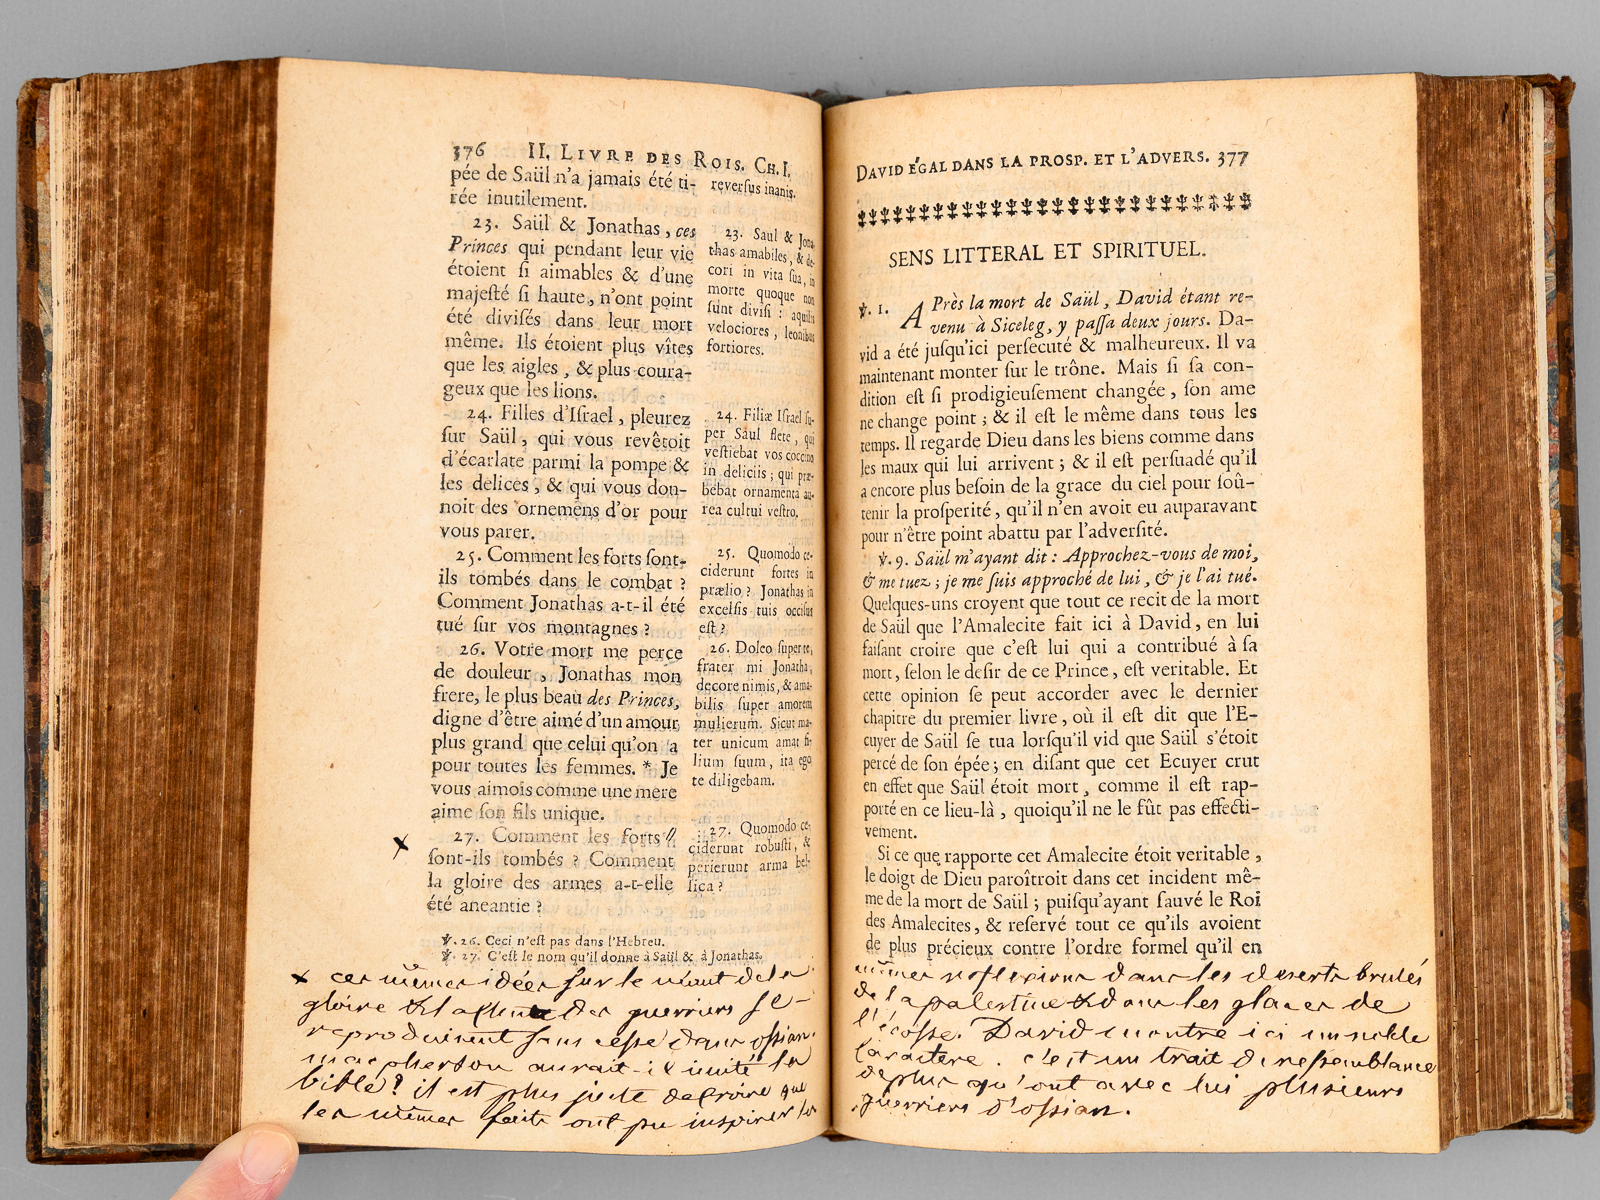 376 II. LIVRE DES ROIS. CH. I.
pée de Saül n'a jamais été ti-
rée inutilement.
23. Saül & Jonathas, ces
Princes qui pendant leur vie
étoient ſi aimables & d'une
majeſté ſi haute, n'ont point
été diviſés dans leur mort
même. Ils étoient plus vîtes
que les aigles, & plus coura-
geux que les lions.
24. Filles d'Iſrael, pleurez
ſur Saül, qui vous revêtoit
d'écarlate parmi la pompe &
les délices, & qui vous don-
noit des ornemens d'or pour
vous parer.
25. Comment les forts ſont-
ils tombés dans le combat ?
Comment Jonathas a-t-il été
tué ſur vos montagnes ?
26. Votre mort me perce
de douleur, Jonathas mon
frere, le plus beau des Princes,
digne d'être aimé d'un amour
plus grand que celui qu'on a
pour toutes les femmes. * Je
vous aimois comme une mere
aime ſon fils unique.
27. Comment les forts //
ſont-ils tombés ? Comment
la gloire des armes a-t-elle
été aneantie ?
reverſus inanis.
23. Saul & Jona-
thas amabiles, & de-
cori in vita ſua, in
morte quoque non
ſunt diviſi : aquilis
velociores, leonibus
fortiores.
24. Filiæ Iſrael ſu-
per Saul flete, qui
veſtiebat vos coccino
in deliciis ; qui præ-
bebat ornamenta au-
rea cultui veſtro.
25. Quomodo ce-
ciderunt fortes in
prælio ? Jonathas in
excelſis tuis occiſus
eſt ?
26. Doleo ſuper te,
frater mi Jonatha,
decore nimis, & ama-
bilis ſuper amorem
mulierum. Sicut ma-
ter unicum amat fi-
lium ſuum, ita ego
te diligebam.
27. Quomodo ce-
ciderunt robuſti, &
perierunt arma bel-
lica ?
℣. 26. Ceci n'eſt pas dans l'Hebreu.
℣. 27. C'eſt le nom qu'il donne à Saül & à Jonathas.
x ces mêmes idées sur le néant de la
gloire & la des guerriers se
reproduisent sans cesse dans ossian.
macpherson aurait-il imité la
bible ? il est plus juste de croire que
les mêmes faits ont pu inspirer les
DAVID ÉGAL DANS LA PROSP. ET L'ADVERS. 377
SENS LITTERAL ET SPIRITUEL.
℣. 1. APrès la mort de Saül, David étant re-
venu à Siceleg, y paſſa deux jours. Da-
vid a été juſqu'ici perſecuté & malheureux. Il va
maintenant monter ſur le trône. Mais ſi ſa con-
dition eſt ſi prodigieuſement changée, ſon ame
ne change point ; & il eſt le même dans tous les
temps. Il regarde Dieu dans les biens comme dans
les maux qui lui arrivent ; & il eſt perſuadé qu'il
a encore plus beſoin de la grace du ciel pour ſoû-
tenir la proſperité, qu'il n'en avoit eu auparavant
pour n'être point abattu par l'adverſité.
℣. 9. Saül m'ayant dit : Approchez-vous de moi,
& me tuez ; je me ſuis approché de lui, & je l'ai tué.
Quelques-uns croyent que tout ce recit de la mort
de Saül que l'Amalecite fait ici à David, en lui
faiſant croire que c'eſt lui qui a contribué à ſa
mort, ſelon le deſir de ce Prince, eſt veritable. Et
cette opinion ſe peut accorder avec le dernier
chapitre du premier livre, où il eſt dit que l'E-
cuyer de Saül ſe tua lorſqu'il vid que Saül s'étoit
percé de ſon épée ; en diſant que cet Ecuyer crut
en effet que Saül étoit mort, comme il eſt rap-
porté en ce lieu-là, quoiqu'il ne le fût pas effecti-
vement.
Si ce que rapporte cet Amalecite étoit veritable,
le doigt de Dieu paroîtroit dans cet incident mê-
me de la mort de Saül ; puiſqu'ayant ſauvé le Roi
des Amalecites, & reſervé tout ce qu'ils avoient
de plus précieux contre l'ordre formel qu'il en
mêmes reflexions dans les deserts brulés
de la palestine & dans les glaces de
l'écosse. David montre ici un noble
caractere. c'est un trait de ressemblance
de plus qu'ont avec lui plusieurs
guerriers d'ossian.